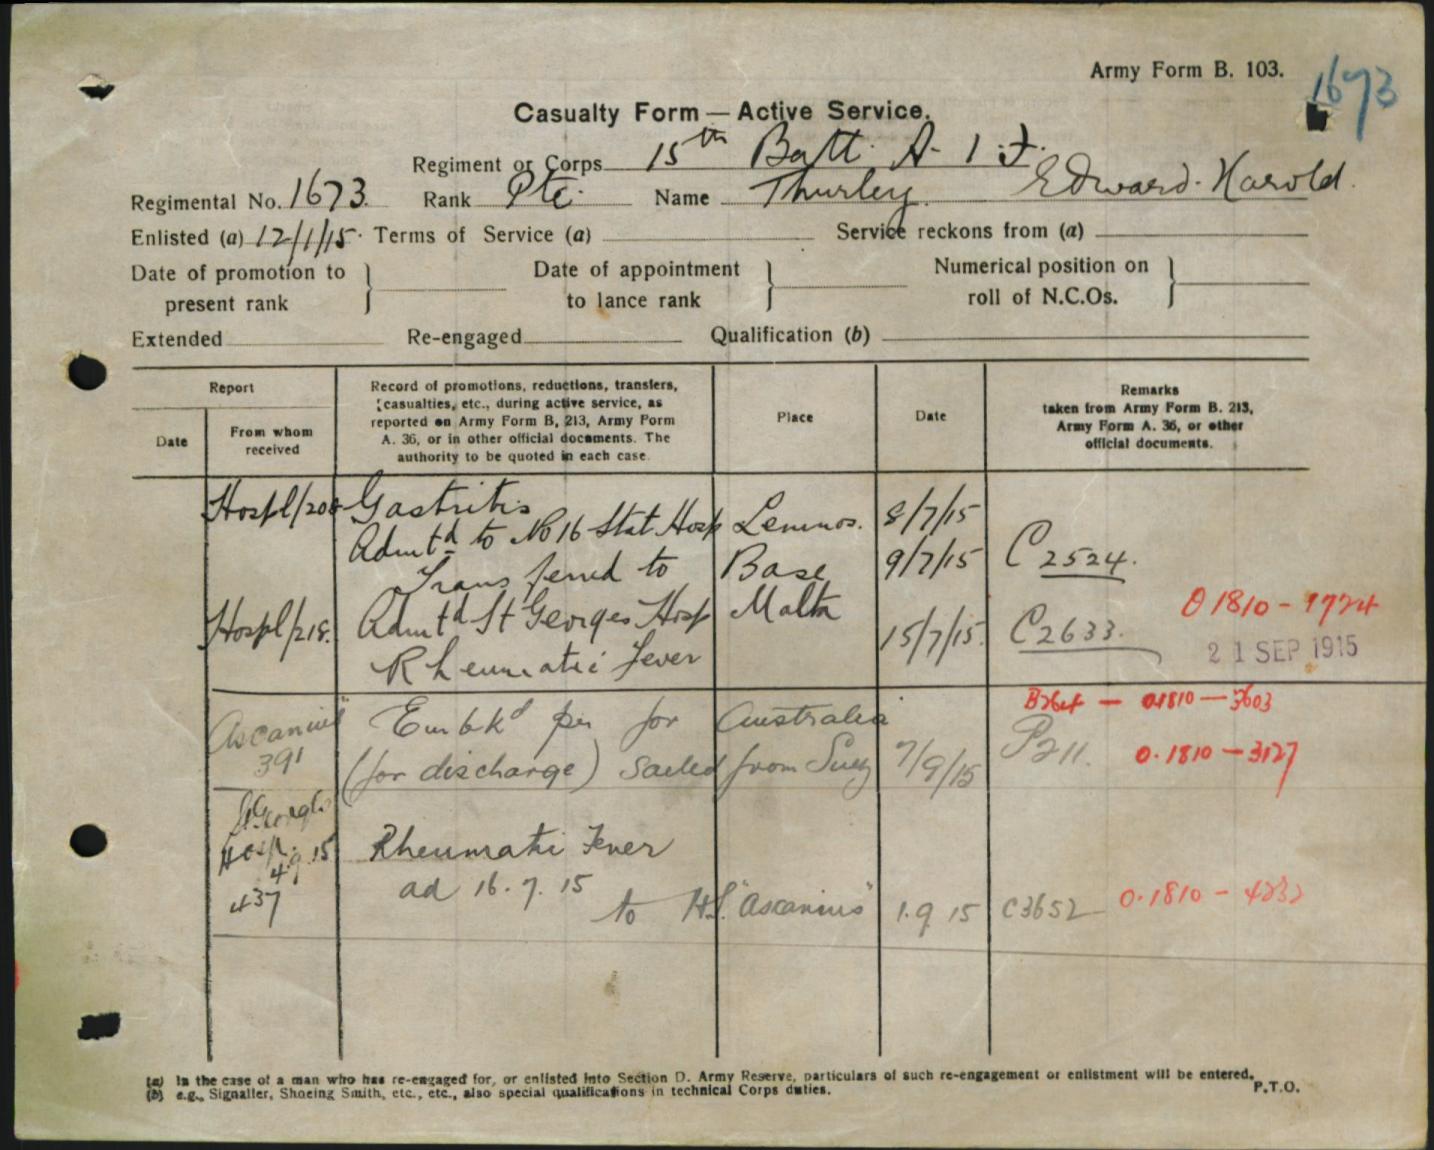 Army Form B. 103.
1673
Casualty Form — Active Service.
Regiment or Corps 15th Batt. A. I. F.
Regimental No. 1673. Rank Pte. Name Thurley. Edward. Harold.
Enlisted (a) 12/1/15. Terms of Service (a) Service reckons from (a)
Date of promotion to present rank } Date of appointment to lance rank } Numerical position on roll of N.C.Os. }
Extended Re-engaged Qualification (b)
Report
Date
From whom received
Record of promotions, reductions, transfers,
casualties, etc., during active service, as
reported on Army Form B, 213, Army Form
A. 36, or in other official documents. The
authority to be quoted in each case.
Place
Date
Remarks
taken from Army Form B. 213,
Army Form A. 36, or other
official documents.
Hospl/208 Gastritis
Admtd to No 16 Stat Hosp Lemnos. 8/7/15
Transferred to Base 9/7/15 C2524.
Hospl/218. Admtd St Georges Hosp Malta 15/7/15. C2633.
O1810 - 1724
21 SEP 1915
Rheumatic Fever
O1810 — 3603
"Ascanius" Embkd per for Australia
391 (for discharge) Sailed from Suez 7/9/15 P211. O.1810 — 3127
St Georges
Hosp. 4.9.15
437
Rheumatic Fever
ad 16.7.15
to H.S. "Ascanius" 1.9.15 C3652 O.1810 -
(a) In the case of a man who has re-engaged for, or enlisted into Section D. Army Reserve, particulars of such re-engagement or enlistment will be entered.
(b) e.g., Signaller, Shoeing Smith, etc., etc., also special qualifications in technical Corps duties.
P.T.O.